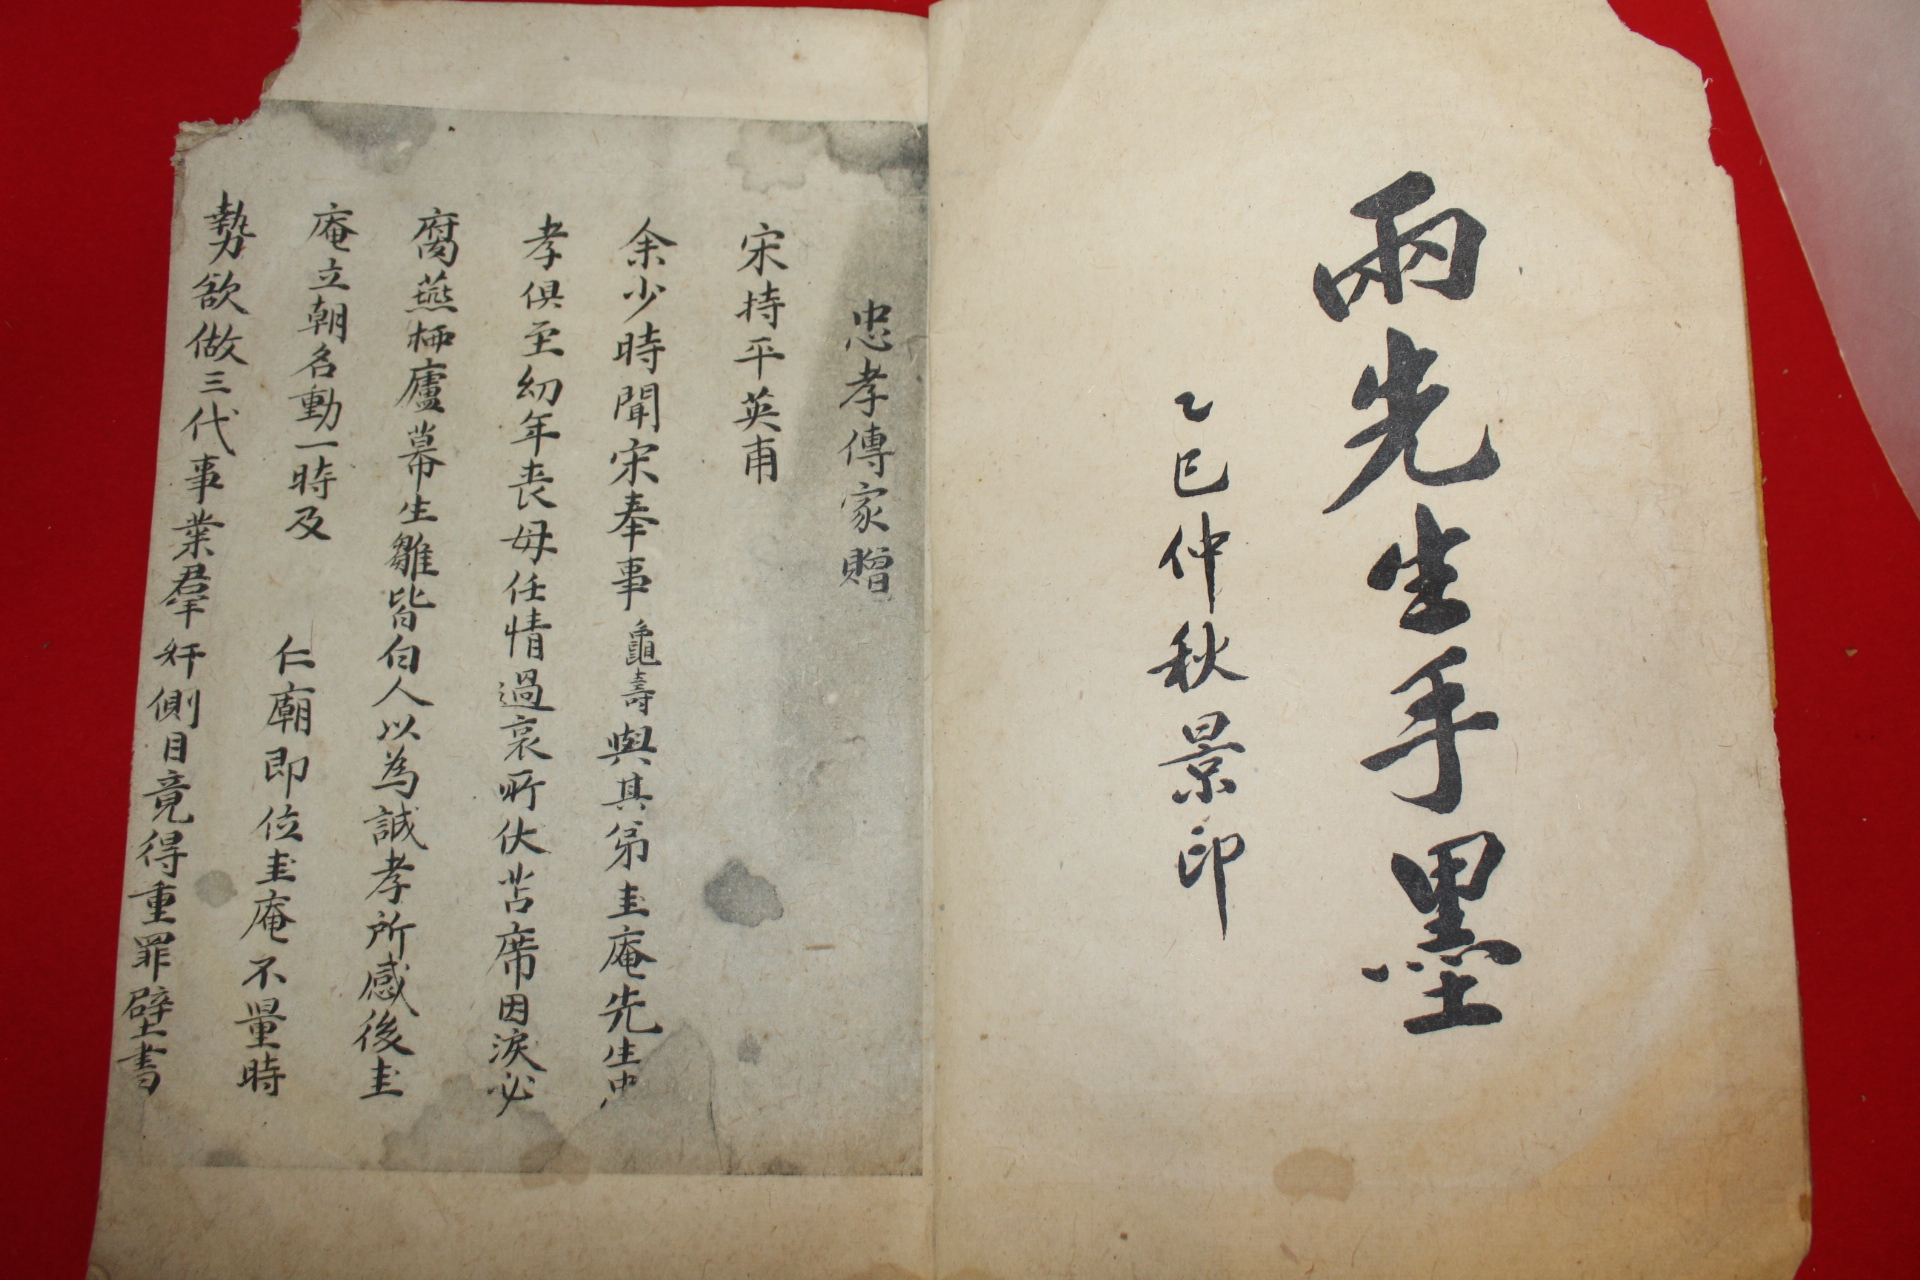 兩先生手墨
乙巳仲秋景印
忠孝傳家贈
宋持平英甫
余少時聞宋奉事龜壽與其弟圭庵先生忠
孝俱至幼年喪母任情過哀所伏苫席因淚必
腐燕栖廬幕生雛皆白人以為誠孝所感後圭
庵立朝名動一時及 仁廟即位圭庵不量時
勢欲做三代事業羣奸側目竟得重罪壁書